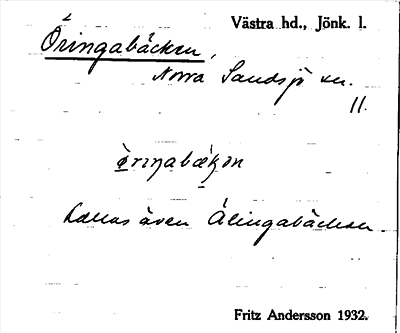 Västra hd., Jönk. l.
Öringabäcken,
Norra Sandsjö sn.
11.
öriŋabækən
kallas även Ålingabäcken.
Fritz Andersson 1932.